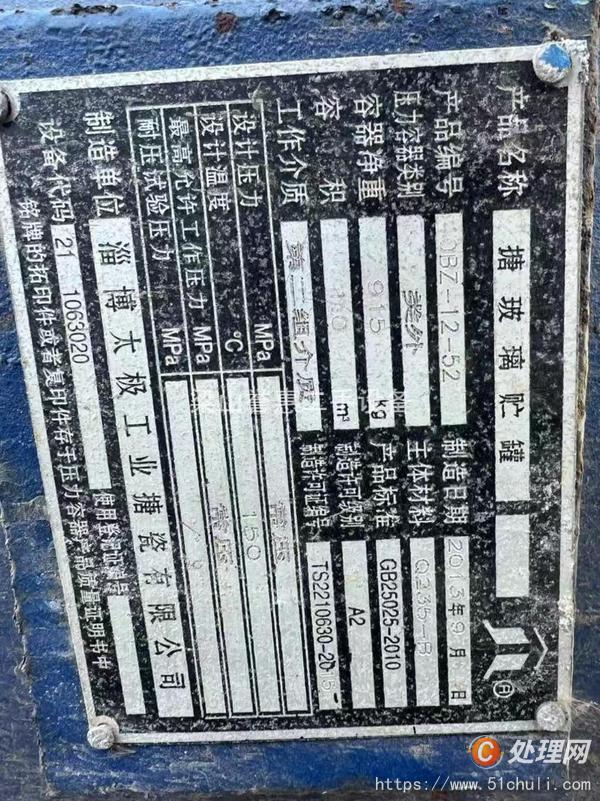 产品名称 搪玻璃贮罐
产品编号 BZ-12-52 制造日期 2013年9月 日
压力容器类别 类外 主体材料 Q235-B
容器净重 915 kg 产品标准 GB25025-2010
容 积 m³ 制造许可级别 A2
工作介质 第二组介质 制造许可证编号 TS2210630-2015
设计压力 MPa 常压
设计温度 ℃ 150
最高允许工作压力 MPa 常压
耐压试验压力 MPa
制造单位 淄博太极工业搪瓷有限公司
设备代码 21 1063020 使用登记证编号
铭牌的拓印件或者复印件存于压力容器产品质量证明书中
C 处理网
https://www.51chuli.com/